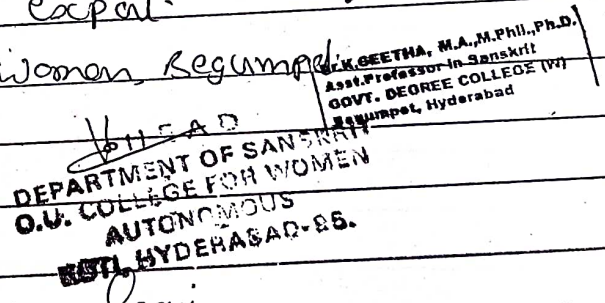 expal.
Women, Begumpet.
Dr.K.GEETHA, M.A.,M.Phil.,Ph.D.
Asst.Professor in Sanskrit
GOVT. DEGREE COLLEGE (W)
Begumpet, Hyderabad
HEAD
DEPARTMENT OF SANSKRIT
O.U. COLLEGE FOR WOMEN
AUTONOMOUS
KOTI, HYDERABAD-95.